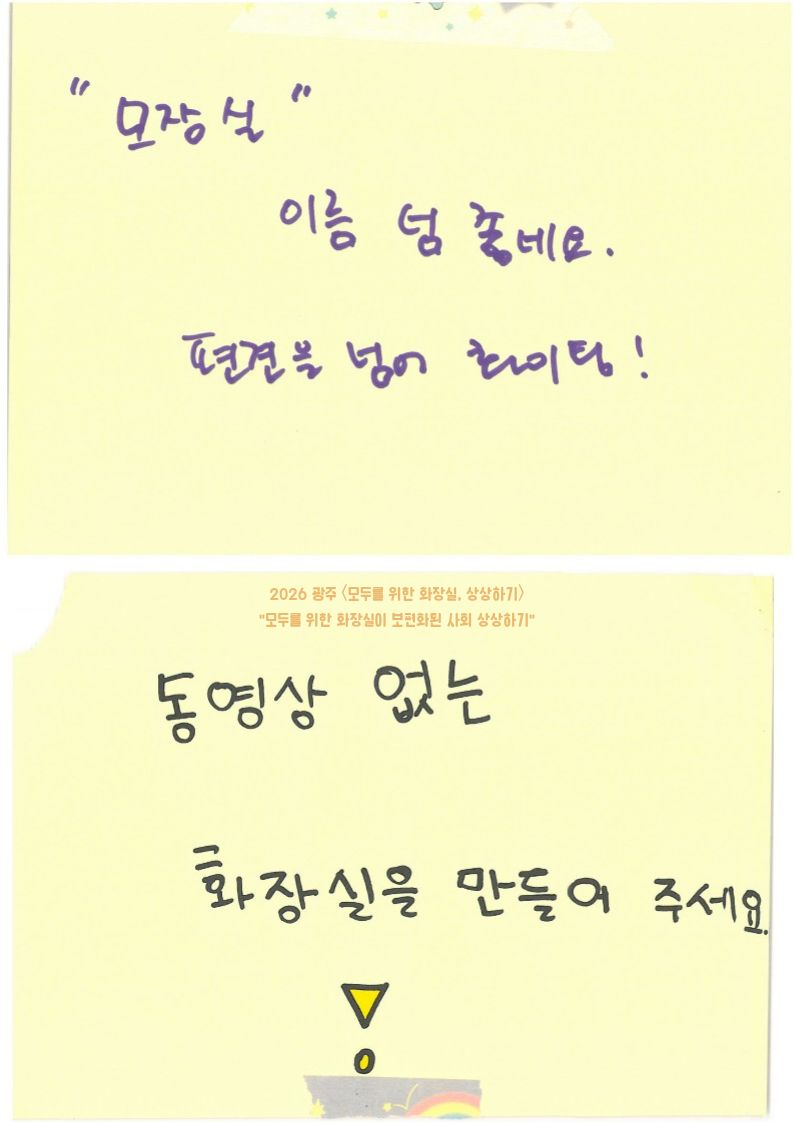 "모장실"
이름 넘 좋네요.
편견을 넘어 화이팅!
2026 광주 <모두를 위한 화장실, 상상하기>
"모두를 위한 화장실이 보편화된 사회 상상하기"
동영상 없는
화장실을 만들어 주세요.
!